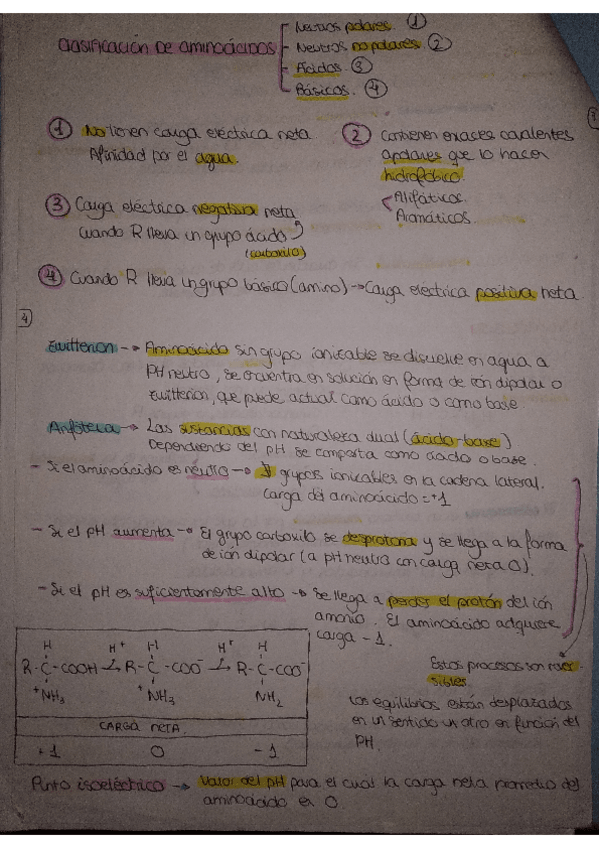 Clasificación de aminoácidos
- Neutros polares. ①
- Neutros no polares. ②
- Ácidos. ③
- Básicos. ④
① No tienen carga eléctrica neta.
Afinidad por el agua.
② Contienen enlaces covalentes
apolares que lo hacen
hidrofóbico.
Alifáticos.
Aromáticos.
③ Carga eléctrica negativa neta
cuando R lleva un grupo ácido
(carboxilo)
④ Cuando R lleva un grupo básico (amino) → Carga eléctrica positiva neta.
4
Zwitterion → Aminoácido sin grupo ionizable se disuelve en agua a
PH neutro, se encuentra en solución en forma de ión dipolar o
zwitterion, que puede actuar como ácido o como base.
Anfótera → Las sustancias con naturaleza dual (ácido-base)
Dependiendo del pH se comporta como ácido o base.
- Si el aminoácido es neutro → grupos ionizables en la cadena lateral.
Carga del aminoácido = +1
- Si el pH aumenta → El grupo carboxilo se desprotona y se llega a la forma
de ión dipolar (a pH neutro con carga neta 0).
- Si el pH es suficientemente alto → se llega a perder el protón del ión
amonio. El aminoácido adquiere
carga - 1.
H H⁺ H H⁺ H
R-C-COOH → R-C-COO⁻ → R-C-COO⁻
⁺NH₃ ⁺NH₃ NH₂
CARGA NETA
+1 0 -1
Estos procesos son rever
sibles.
Los equilibrios están desplazados
en un sentido u otro en función del
PH.
Punto isoeléctrico → Valor del pH para el cual la carga neta promedio del
aminoácido es 0.